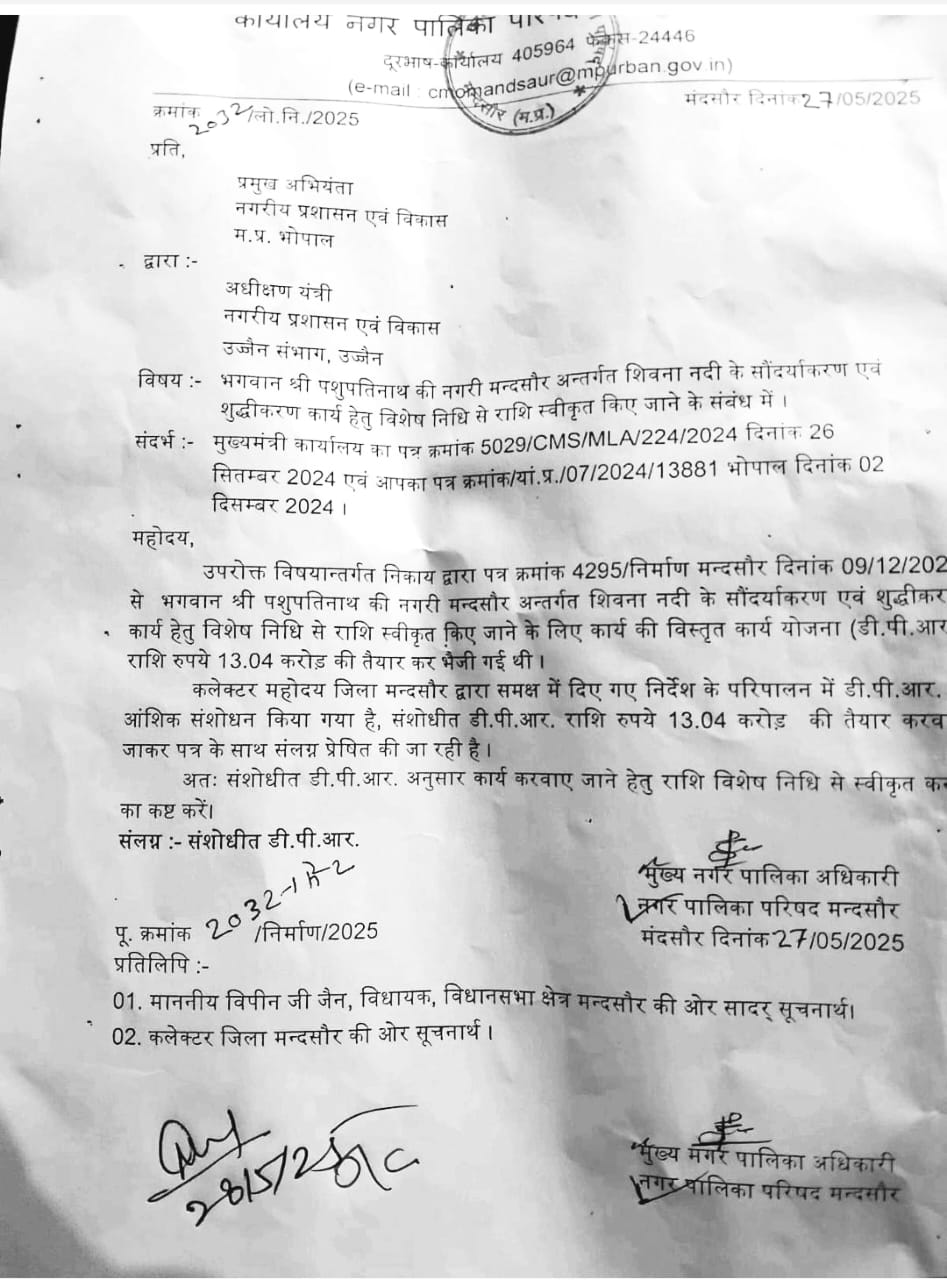 कार्यालय नगर पालिका परिषद
दूरभाष-कार्यालय 405964 फेक्स-24446
(e-mail : cmomandsaur@mpurban.gov.in)
मंदसौर (म.प्र.)
क्रमांक 2032/लो.नि./2025
मंदसौर दिनांक 27/05/2025
प्रति,
प्रमुख अभियंता
नगरीय प्रशासन एवं विकास
म.प्र. भोपाल
द्वारा :-
अधीक्षण यंत्री
नगरीय प्रशासन एवं विकास
उज्जैन संभाग, उज्जैन
विषय :- भगवान श्री पशुपतिनाथ की नगरी मन्दसौर अन्तर्गत शिवना नदी के सौंदर्याकरण एवं
शुद्धीकरण कार्य हेतु विशेष निधि से राशि स्वीकृत किए जाने के संबंध में ।
संदर्भ :- मुख्यमंत्री कार्यालय का पत्र क्रमांक 5029/CMS/MLA/224/2024 दिनांक 26
सितम्बर 2024 एवं आपका पत्र क्रमांक/यां.प्र./07/2024/13881 भोपाल दिनांक 02
दिसम्बर 2024 ।
महोदय,
उपरोक्त विषयान्तर्गत निकाय द्वारा पत्र क्रमांक 4295/निर्माण मन्दसौर दिनांक 09/12/202
से भगवान श्री पशुपतिनाथ की नगरी मन्दसौर अन्तर्गत शिवना नदी के सौंदर्याकरण एवं शुद्धीकर
कार्य हेतु विशेष निधि से राशि स्वीकृत किए जाने के लिए कार्य की विस्तृत कार्य योजना (डी.पी.आर
राशि रुपये 13.04 करोड़ की तैयार कर भैजी गई थी ।
कलेक्टर महोदय जिला मन्दसौर द्वारा समक्ष में दिए गए निर्देश के परिपालन में डी.पी.आर.
आंशिक संशोधन किया गया है, संशोधीत डी.पी.आर. राशि रुपये 13.04 करोड़ की तैयार करव
जाकर पत्र के साथ संलग्न प्रेषित की जा रही है ।
अतः संशोधीत डी.पी.आर. अनुसार कार्य करवाए जाने हेतु राशि विशेष निधि से स्वीकृत कर
का कष्ट करें।
संलग्न :- संशोधीत डी.पी.आर.
मुख्य नगर पालिका अधिकारी
नगर पालिका परिषद मन्दसौर
मंदसौर दिनांक 27/05/2025
पृ. क्रमांक 2032-1 से-2 /निर्माण/2025
प्रतिलिपि :-
01. माननीय विपीन जी जैन, विधायक, विधानसभा क्षेत्र मन्दसौर की ओर सादर् सूचनार्थ।
02. कलेक्टर जिला मन्दसौर की ओर सूचनार्थ ।
28/5/25
मुख्य नगर पालिका अधिकारी
नगर पालिका परिषद मन्दसौर